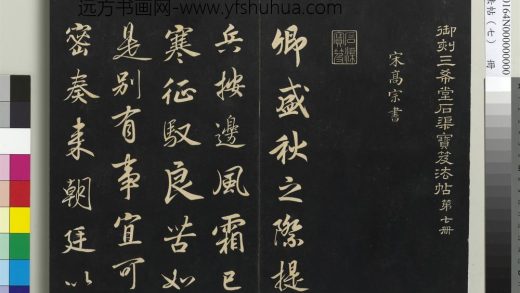 远方书画网-www.yfshuhua.com
御刻三希堂石渠寶笈法帖第七册
宋高宗書
卿盛秋之際提
兵按邊風霜已
寒征馭良苦如
是別有事宜可
密奏来朝廷以